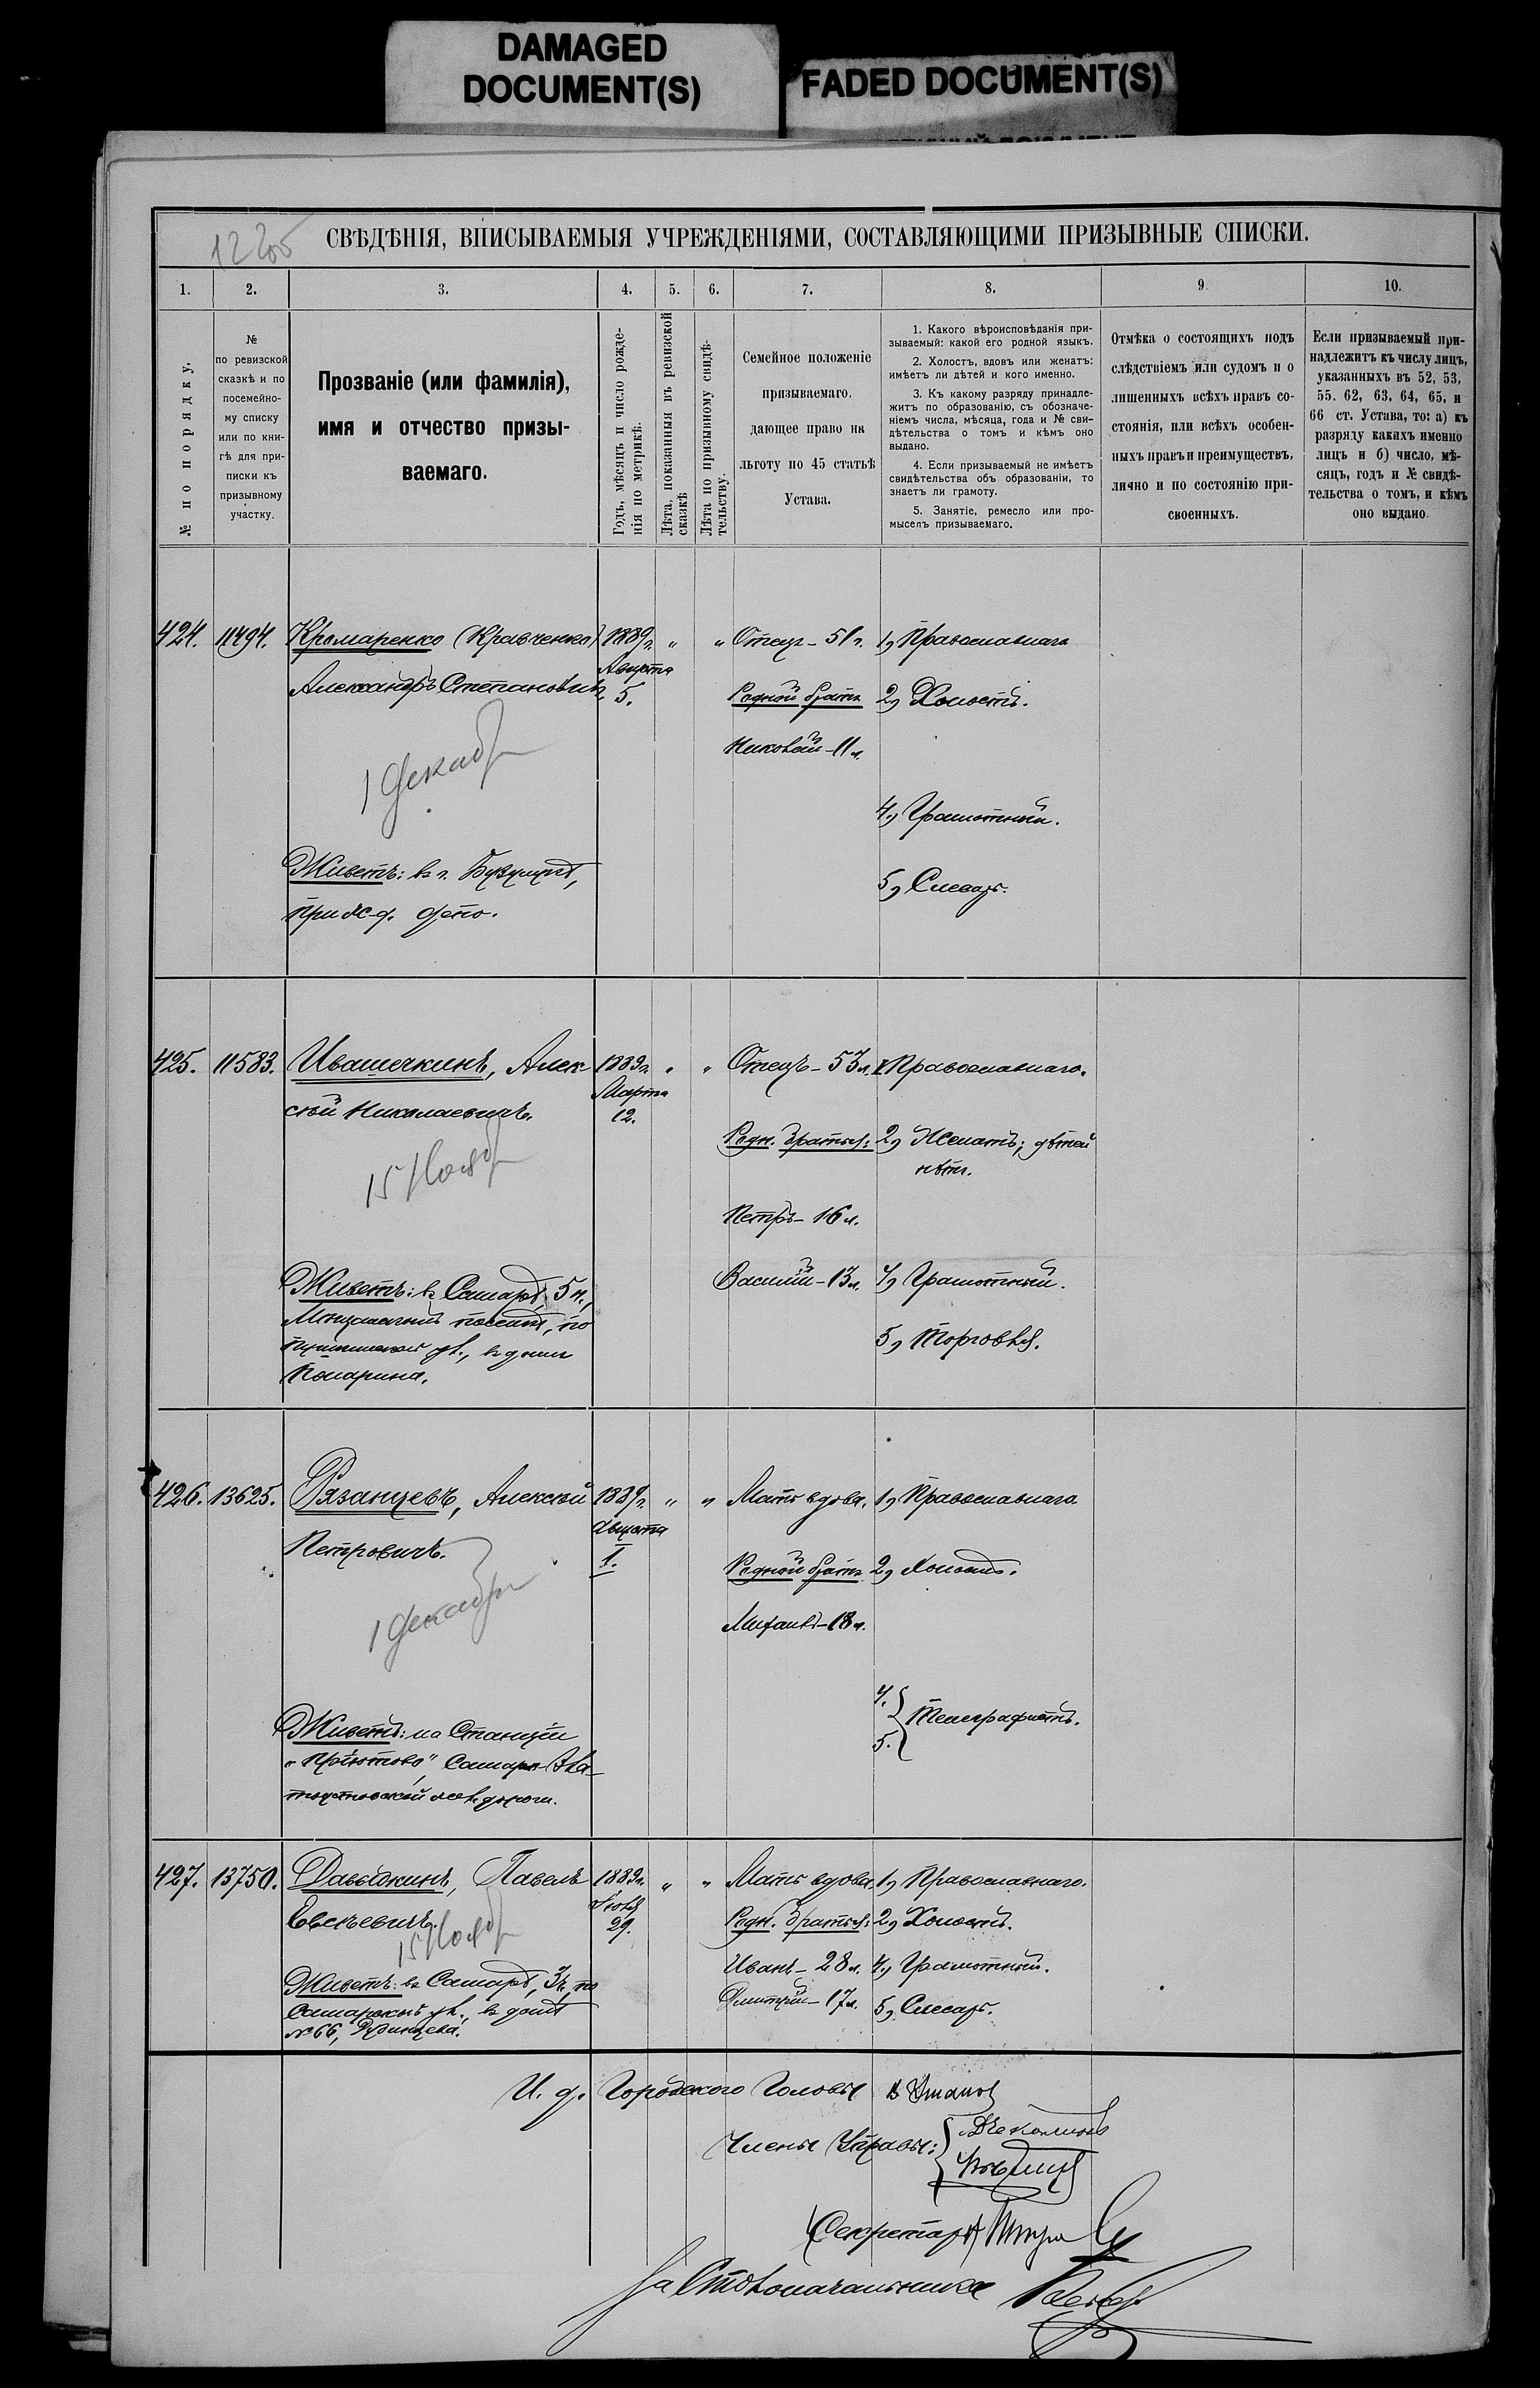 DAMAGED
DOCUMENT(S)
FADED DOCUMENT(S)
СВѢДѢНІЯ, ВПИСЫВАЕМЫЯ УЧРЕЖДЕНІЯМИ, СОСТАВЛЯЮЩИМИ ПРИЗЫВНЫЕ СПИСКИ.
1.
2.
3.
4.
5.
6.
7.
8.
9
10.
№ по порядку.
№
по ревизской
сказкѣ и по
посемейно-
му списку
или по кни-
гѣ для при-
писки къ
призывному
участку.
Прозваніе (или фамилія),
имя и отчество призы-
ваемаго.
Годъ, мѣсяцъ и число рожде-
нія по метрикѣ.
Лѣта, показанныя въ ревизской
сказкѣ
Лѣта по призывному свидѣ-
тельству.
Семейное положеніе
призываемаго,
дающее право на
льготу по 45 статьѣ
Устава.
1. Какого вѣроисповѣданія при-
зываемый: какой его родной языкъ.
2. Холостъ, вдовъ или женатъ:
имѣетъ ли дѣтей и кого именно.
3. Къ какому разряду принадле-
житъ по образованію, съ обозначе-
ніемъ числа, мѣсяца, года и № сви-
дѣтельства о томъ и кѣмъ оно
выдано.
4. Если призываемый не имѣетъ
свидѣтельства объ образованіи, то
знаетъ ли грамоту.
5. Занятіе, ремесло или про-
мыселъ призываемаго.
Отмѣка о состоящихъ подъ
слѣдствіемъ или судомъ и о
лишенныхъ всѣхъ правъ со-
стоянія, или всѣхъ особен-
ныхъ правъ и преимуществъ,
лично и по состоянію при-
своенныхъ.
Если призываемый при-
надлежитъ къ числу лицъ,
указанныхъ въ 52, 53,
55, 62, 63, 64, 65, и
66 ст. Устава, то: а) къ
разряду какихъ именно
лицъ и б) число, мѣ-
сяцъ, годъ и № свидѣ-
тельства о томъ, и кѣмъ
оно выдано.
424.
11494.
Крамаренко (Кравченко)
Александръ Степановичъ
1 Декабр
Живетъ: въ г. Бузулукѣ,
при ж-д. депо.
1889 г.
Августа
5.
"
"
Отецъ - 51 г.
Родной братъ
Николай - 11 л.
1, Православнаго
2, Холостъ.
4, Грамотный.
5, Слесарь.
425.
11583.
Ивашечкинъ, Алек-
сѣй Николаевичъ.
15 Нояб
Живетъ: въ Самарѣ, 5 ч.,
поселкѣ, по
ул., въ домѣ
1889 г.
Марта
12.
"
"
Отецъ - 53 л.
Родн. братья:
Петръ - 16 л.
Василій - 13 л.
1, Православнаго.
2, Женатъ; дѣтей
нѣтъ.
4, Грамотный.
5, Торговля.
426.
13625.
Рязанцевъ, Алексѣй
Петровичъ.
1 Декабр
Живетъ: на Станціи
"Пріютово", Самаро-Зла-
тоустовской жел. дороги.
1889 г.
Августа
1.
"
"
Мать вдова.
Родной братъ
Михаилъ - 18 л.
1, Православнаго
2, Холостъ.
4.
5. } Телеграфистъ.
427.
13750.
Давыдкинъ, Павелъ
Евсѣевичъ.
15 Нояб
Живетъ: въ Самарѣ, 3 ч., по
Самарской ул., въ домѣ
№ 66,
1889 г.
Іюля
29.
"
"
Мать вдова.
Родн. братья:
Иванъ - 28 л.
Дмитрій - 17 л.
1, Православнаго.
2, Холостъ.
4, Грамотный.
5, Слесарь.
И. д. Городского Головы
Члены Управы:
Секретарь
За Столоначальника